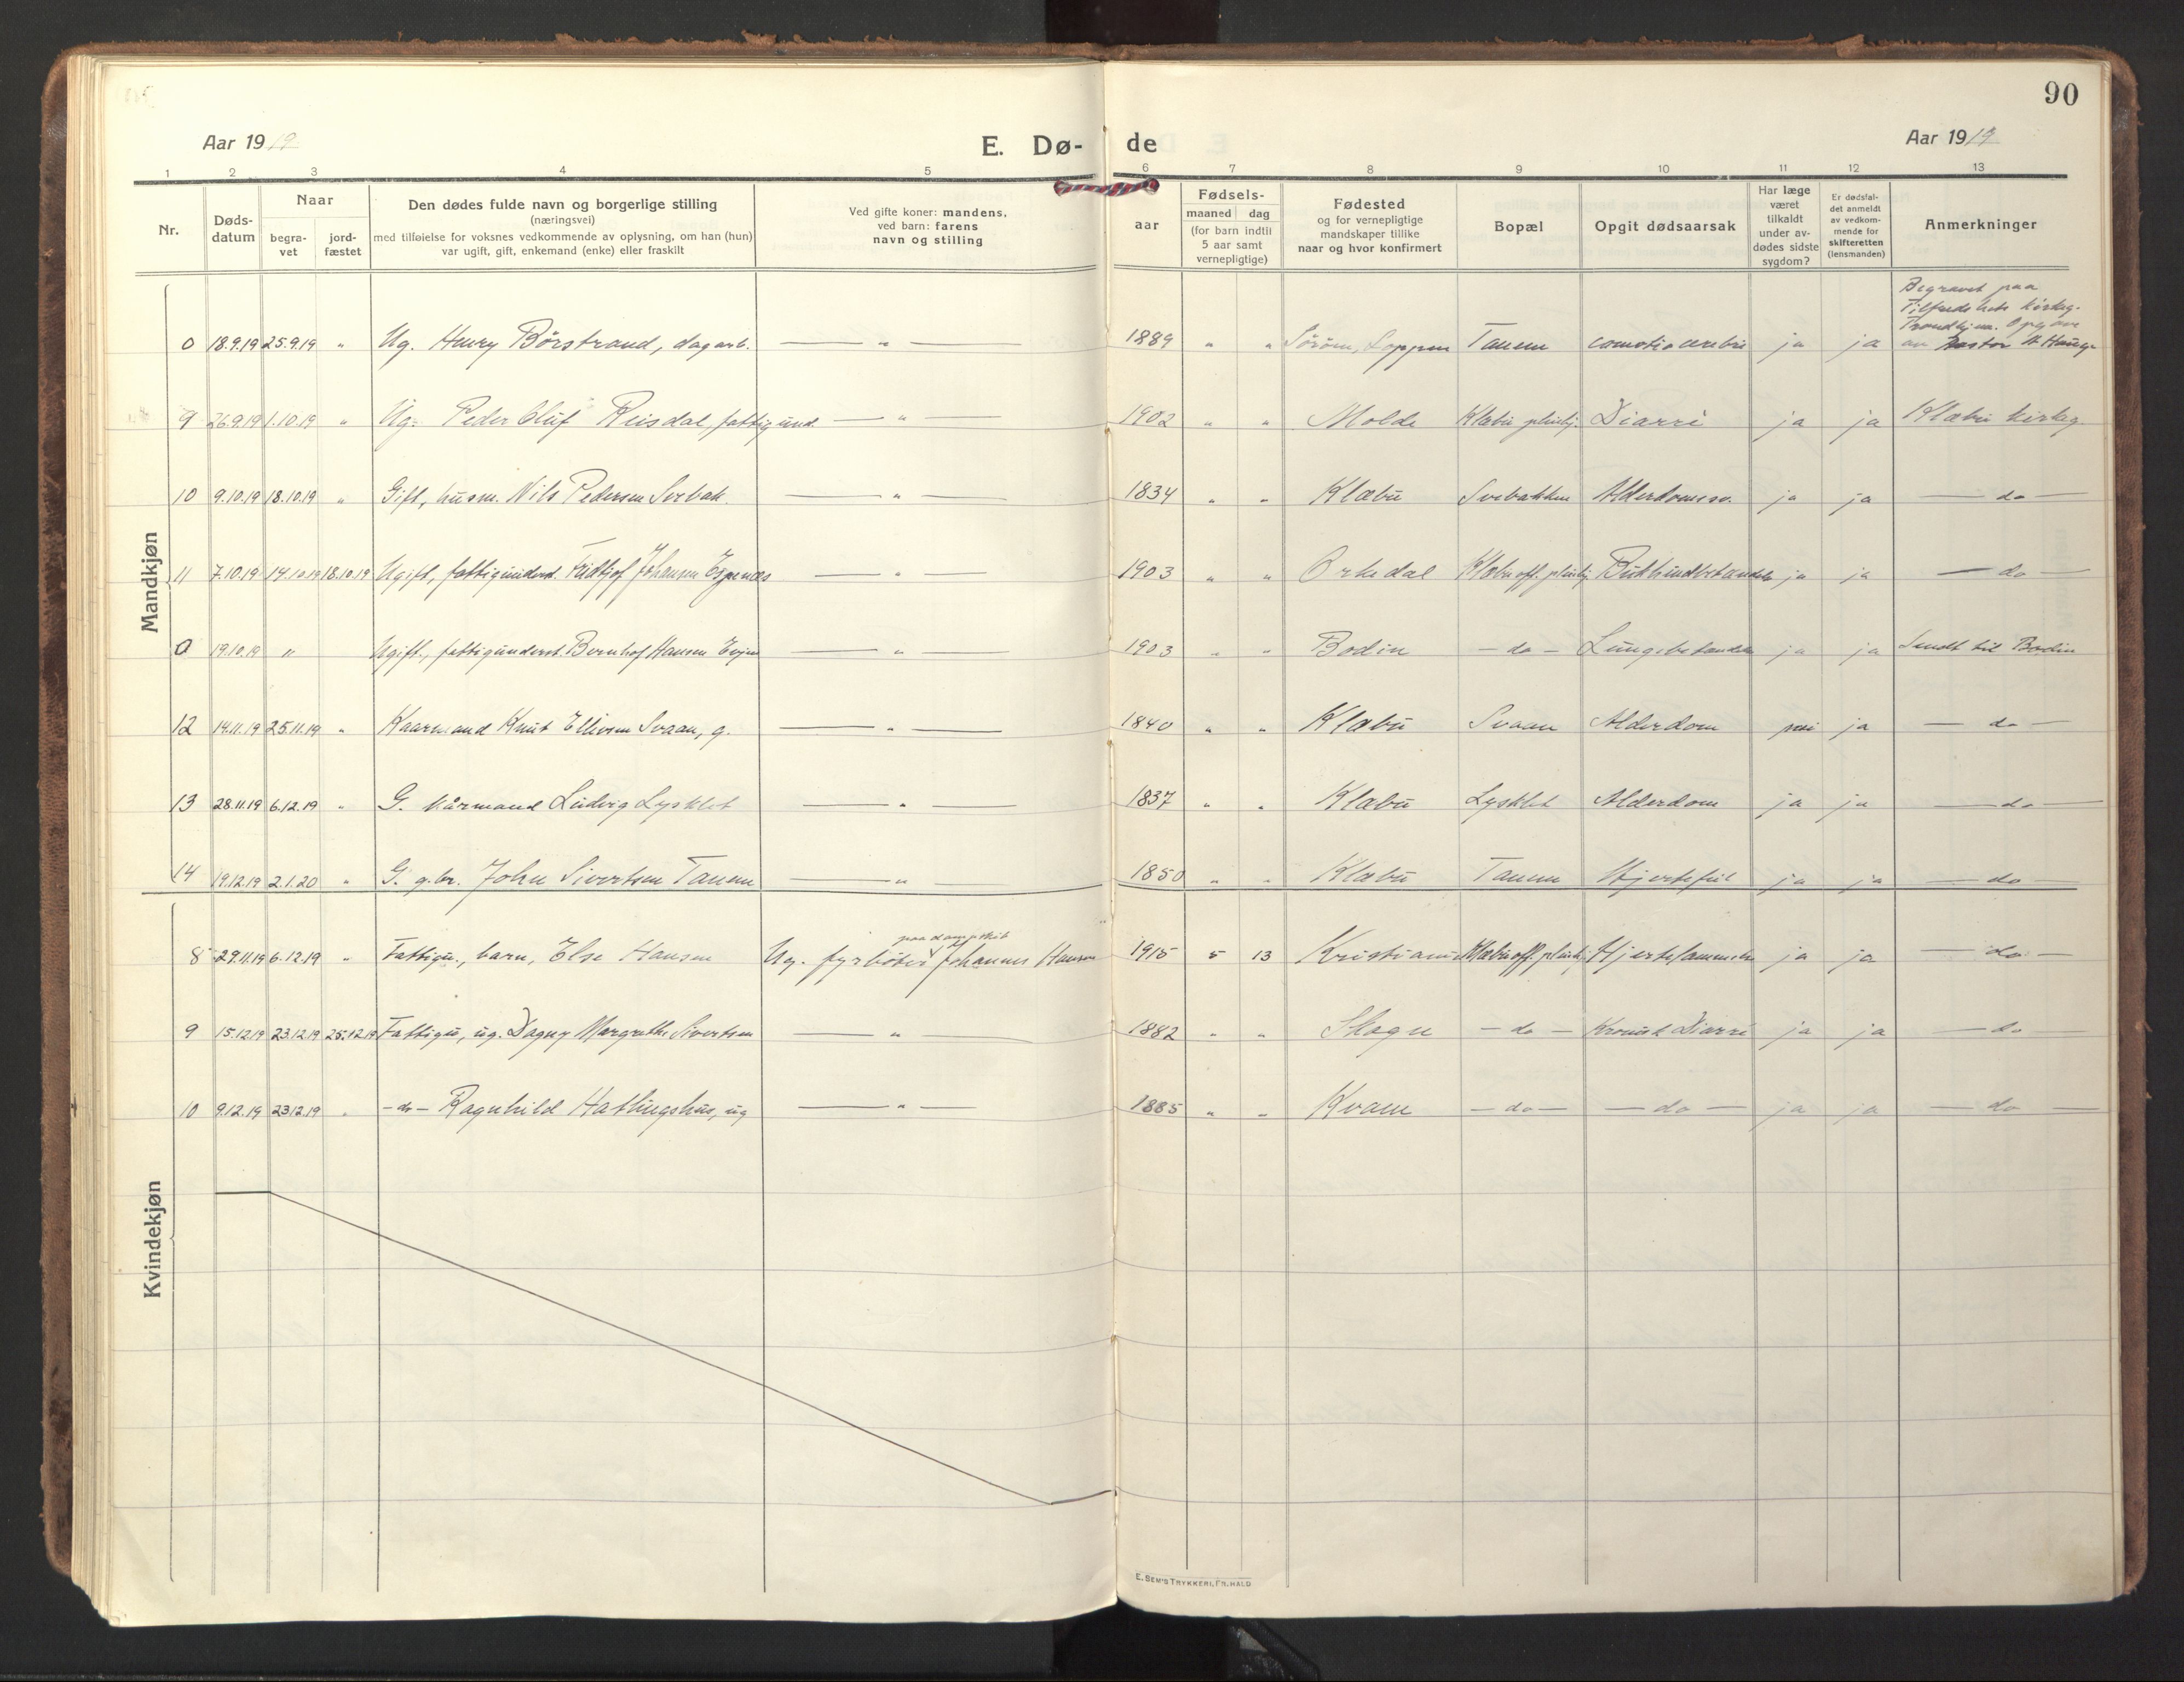 90
Aar 1919 E. Dø- de Aar 1919
1 2 3 4 5 6 7 8 9 10 11 12 13
Nr.
Døds-
datum
Naar
begra-
vet
jord-
fæstet
Den dødes fulde navn og borgerlige stilling
(næringsvei)
med tilføielse for voksnes vedkommende av oplysning, om han (hun)
var ugift, gift, enkemand (enke) eller fraskilt
Ved gifte koner: mandens,
ved barn: farens
navn og stilling
aar
Fødsels-
maaned dag
(for barn indtil
5 aar samt
vernepligtige)
Fødested
og for vernepligtige
mandskaper tillike
naar og hvor konfirmert
Bopæl
Opgit dødsaarsak
Har læge
været
tilkaldt
under av-
dødes sidste
sygdom?
Er dødsfal-
det anmeldt
av vedkom-
mende for
skifteretten
(lensmanden)
Anmerkninger
Mandkjøn
Begravet paa
Tilfredshets kirkeg.
Trondhjem.
0 18.9.19 25.9.19 " Ug. Henry Börstrand, dagarb. — " — 1889 " " Söröen, Loppen Tanem comotio cerebri ja ja av Pastor H Hauge
9 26.9.19 1.10.19 " Ug. Peder Oluf Reisdal, fattigund. — " — 1902 " " Molde Klæbu pleiehj. Diarré ja ja Klæbu kirkeg
10 9.10.19 18.10.19 " Gift, husm. Nils Pedersen Svebak. — " — 1834 " " Klæbu Svebakken Alderdomssv. ja ja — do —
11 7.10.19 14.10.19 18.10.19 Ugift, fattigunderst. Fridtjof Johansen Espenes — " — 1903 " " Orkedal Klæbu off. pleiehj. Bukhindbetændelse ja ja — do —
0 19.10.19 " Ugift, fattigunderst. Bernhof Hansen Evjen — " — 1903 " " Bodin — do — Lungebetændelse ja ja Sendt til Bodin
12 14.11.19 25.11.19 " Kaarmand Knut Ellevsen Svaan, g. — " — 1840 " " Klæbu Svaan Alderdom nei ja — do —
13 28.11.19 6.12.19 " G. kårmand Ludvig Lysklet — " — 1837 " " Klæbu Lysklet Alderdom ja ja — do —
14 19.12.19 2.1.20 " G. g.br. John Sivertsen Tanem — " — 1850 " " Klæbu Tanem Hjertefeil ja ja — do —
Kvindekjøn
paa dampskib
8 29.11.19 6.12.19 " Fattigu., barn, Else Hansen Ug. fyrböter Johannes Hansen 1915 5 13 Kristiania Klæbu off. pleiehj. Hjertelammelse ja ja — do —
9 15.12.19 23.12.19 25.12.19 Fattigu, ug. Dagny Margrethe Sivertsen — " — 1882 " " Skogn — do — Kronisk Diarré ja ja — do
10 9.12.19 23.12.19 " — do — Ragnhild Hatlingshus, ug — " — 1885 " " Kvam — do — — do — ja ja — do —
E. SEM'S TRYKKERI, FR.HALD